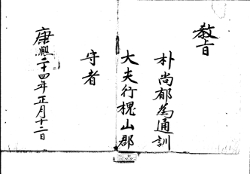 敎旨
朴尙郁爲通訓
大夫行槐山郡
守者
康熙二十四年正月十二日